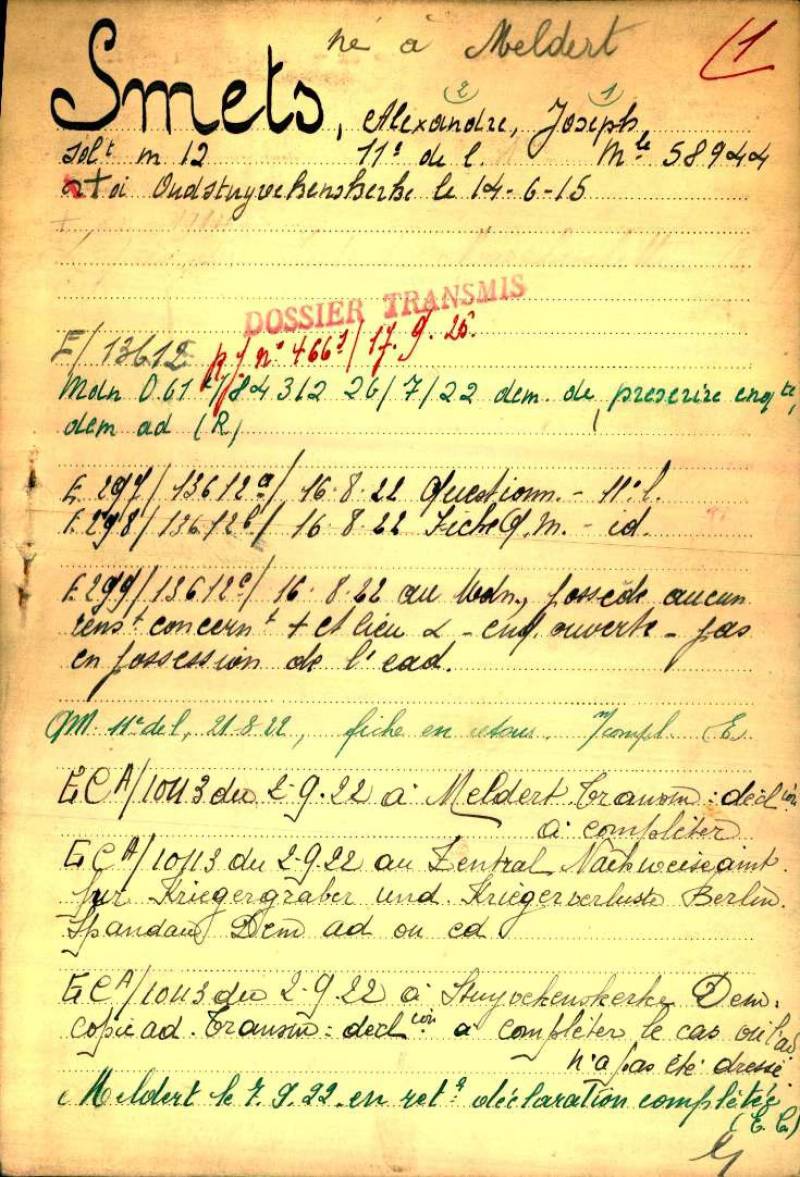 né à Meldert
1
Smets, Alexandre, Joseph,
2 1
Solt m 12 11e de l. Mle 58944
+ à Oudstuyvekenskerke le 14-6-15
DOSSIER TRANSMIS
E/13612 n° 4661/17.9.25.
Mdn 061 /84312 26/7/22 dem. de prescrire enqte,
dem ad (R)
E 297/13612a/ 16.8.22 Questionn. - 11e l.
E 298/13612b/ 16.8.22 Fiche Q.M. - id.
E 299/13612c/ 16.8.22 au Mdn, possède aucun
renst concernt + et lieu - enq. ouverte - pas
en possession de l'ead.
QM 11e de l, 21.8.22, fiche en retour. compl. E.
ECA/10113 du 2-9.22 à Meldert. Transm: déclion
à compléter
ECA/10113 du 2-9.22 au Zentral Nachweiseamt.
für Kriegergraber und Kriegerverluste Berlin.
Spandau Dem ad ou ed
ECA/10113 du 2-9.22 à Stuyvekenskerke Dem.
copie ad. Transm: déclion à compléter le cas où l'ad
n'a pas été dressé
Meldert le 7.9.22. en ret. déclaration complétée
(E.C.)